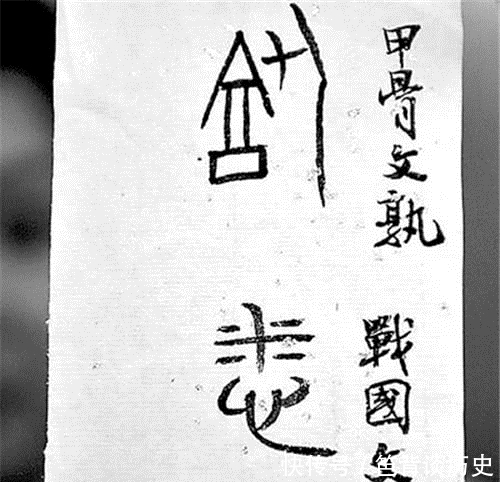 甲骨文孰
戰國文
快传号 谈历史